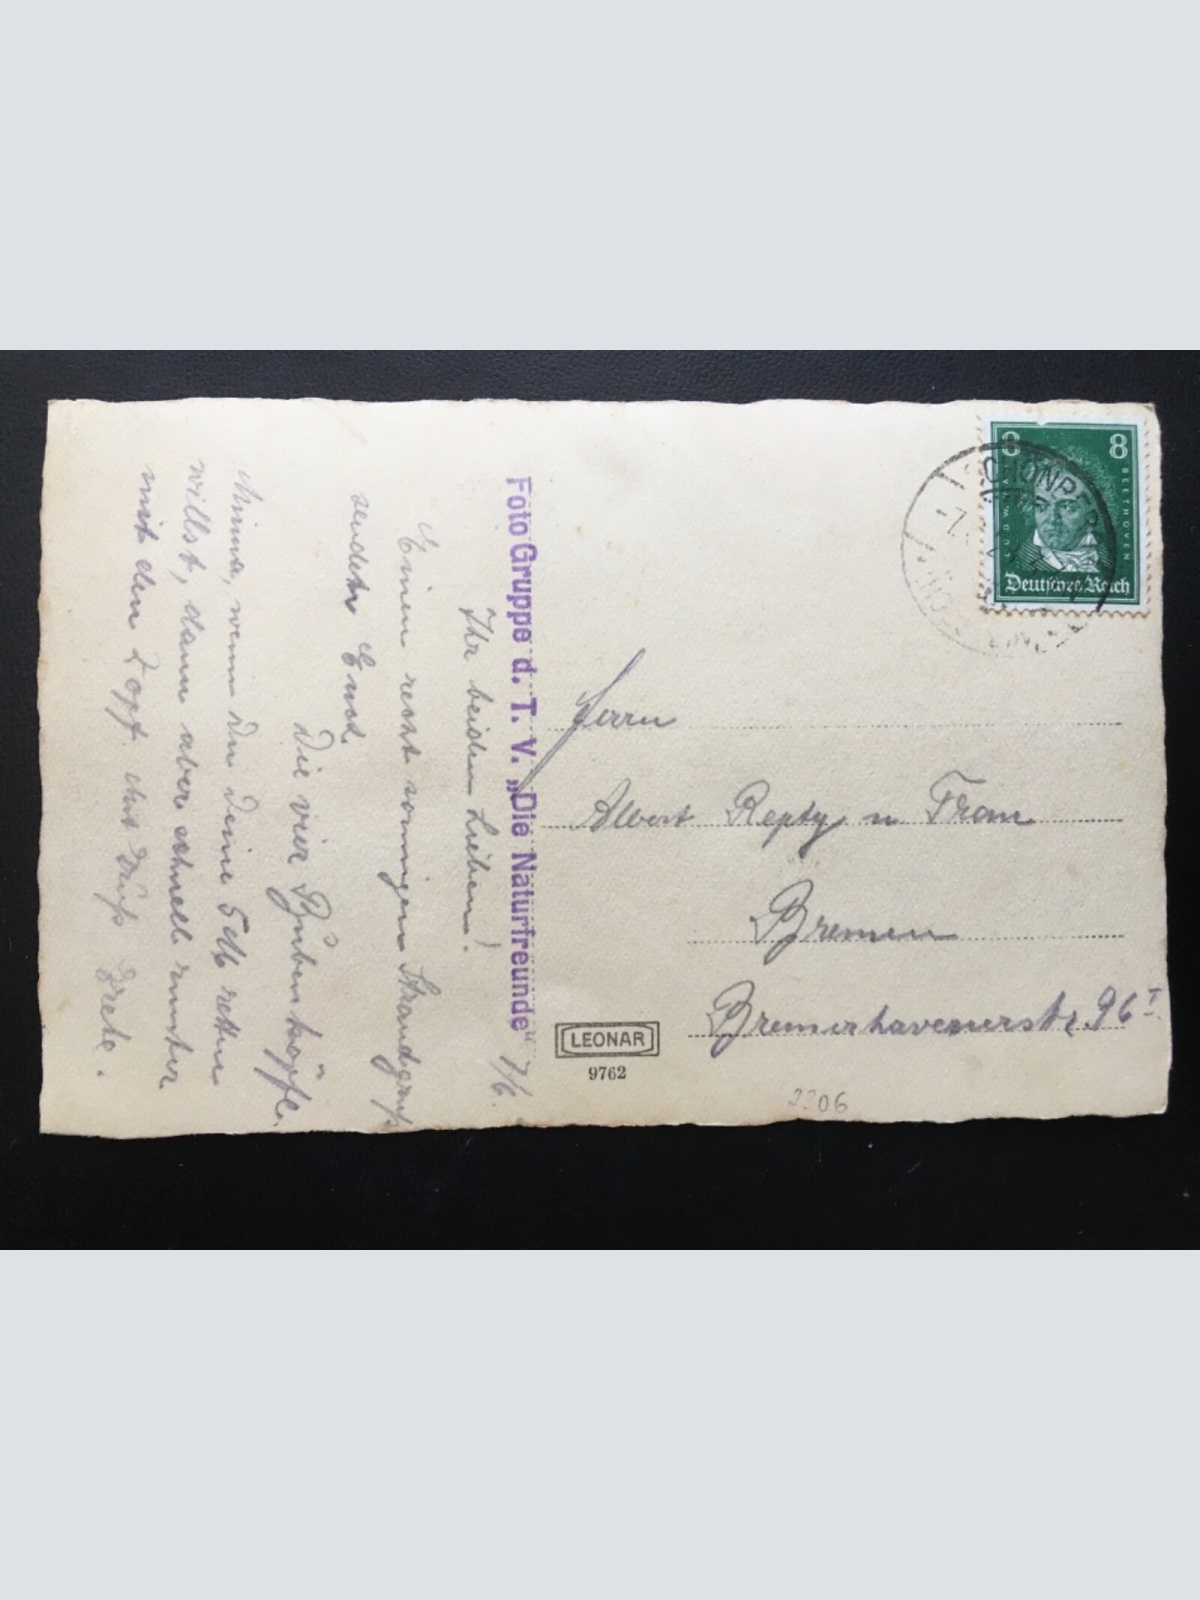 7/6.
Ihr beiden Lieben!
Einen recht sonnigen Strandgruß
sendet Euch
Die vier Bubenköpfe.
Minna, wenn du deine 5 M retten
willst, dann aber schnell runter
mit den Zopf. Gruß Grete.
Foto Gruppe d. T. V. „Die Naturfreunde"
8 8
LUDWIG VAN BEETHOVEN
Deutsches Reich
SCHÖNBERG
Herrn
Albert Repty u Frau
Bremen
Bremerhavenerstr. 96 I
LEONAR
9762
2206